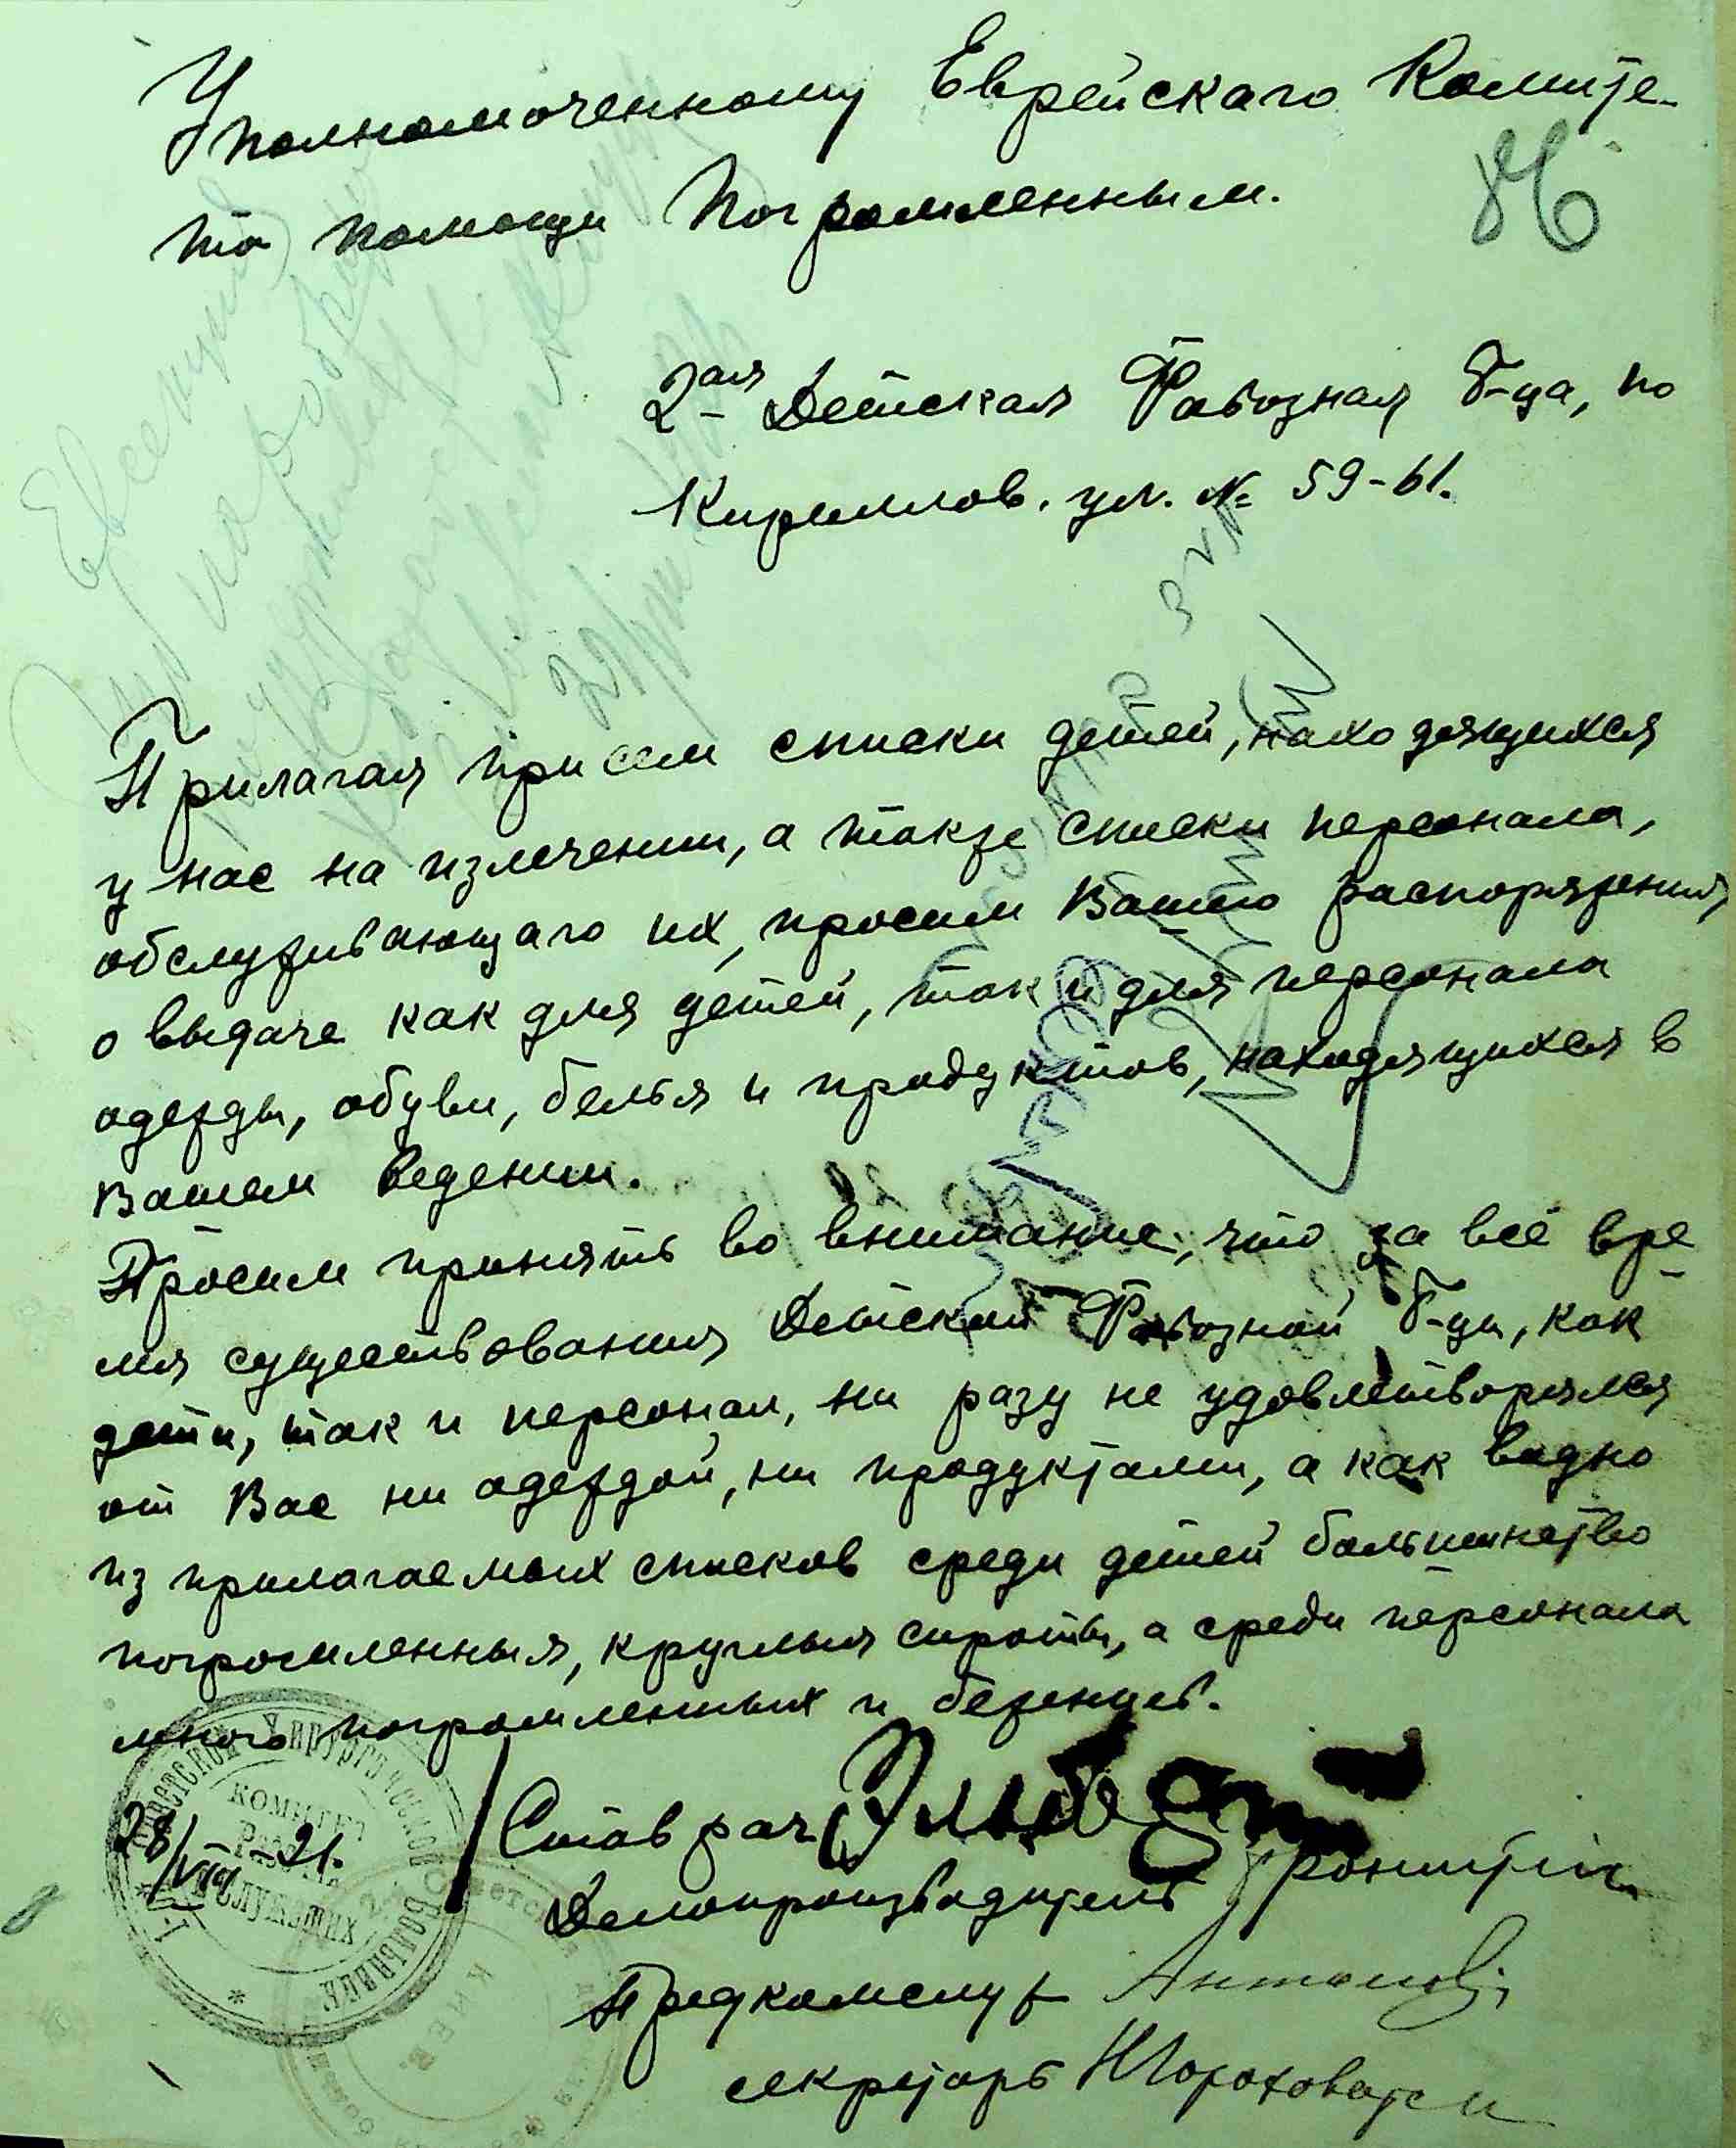 Уполномоченному Еврейскаго Комите-
та помощи Погромленным.
86
2-ая Детская Фавозная б-ца, по
Кириллов. ул. № 59-61.
Прилагая при сем списки детей, находящихся
у нас на излечении, а также списки персонала,
обслуживающаго их, просим Вашего распоряжения
о выдаче как для детей, так и для персонала
одежды, обуви, белья и продуктов, находящихся в
Вашем ведении.
Просим принять во внимание, что за всё вре-
мя существования Детской Фавозной б-цы, как
дети, так и персонал, ни разу не удовлетворялся
от Вас ни одеждой, ни продуктами, а как видно
из прилагаемых списков среди детей большинство
погромленныя, круглыя сироты, а среди персонала
много погромленных и беженцев.
28/VIII-21.
Ставрач
Делопроизводитель
Предкомслуж
секретарь
Советской Хирургической больнице
КОМИТЕТ
СЛУЖАЩИХ
КИЕВ